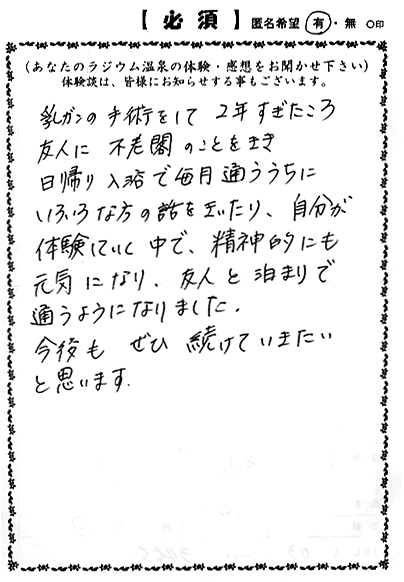 【必須】 匿名希望 有・無 ○印
(あなたのラジウム温泉の体験・感想をお聞かせ下さい)
体験談は、皆様にお知らせする事もございます。
乳ガンの手術をして 2年すぎたころ
友人に 不老閣のことをきき
日帰り入浴で毎月通ううちに
いろいろな方の話をきいたり、自分が
体験していく中で、精神的にも
元気になり、友人と泊まりで
通うようになりました。
今後も ぜひ 続けていきたい
と思います。